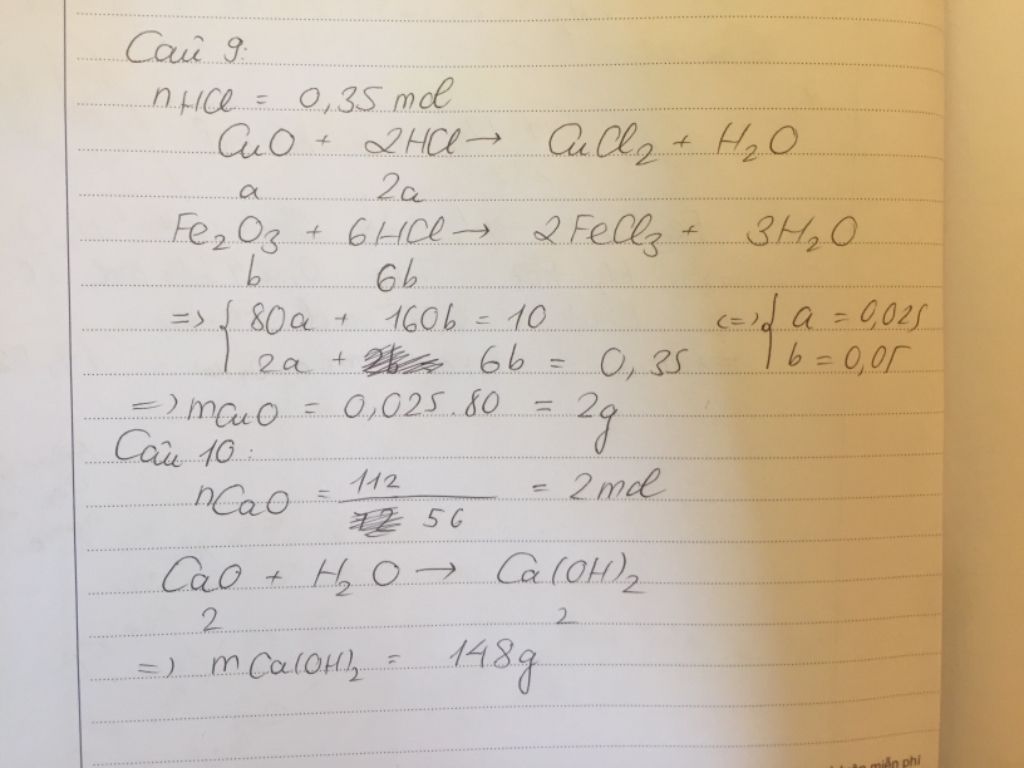 Câu 9:
nHCl = 0,35 mol
CuO + 2HCl → CuCl₂ + H₂O
a 2a
Fe₂O₃ + 6HCl → 2FeCl₃ + 3H₂O
b 6b
=> { 80a + 160b = 10 <=> { a = 0,025
2a + 6b = 0,35 b = 0,05
=> mCuO = 0,025.80 = 2g
Câu 10:
nCaO = 112 / 56 = 2 mol
CaO + H₂O → Ca(OH)₂
2 2
=> mCa(OH)₂ = 148g
miễn phí